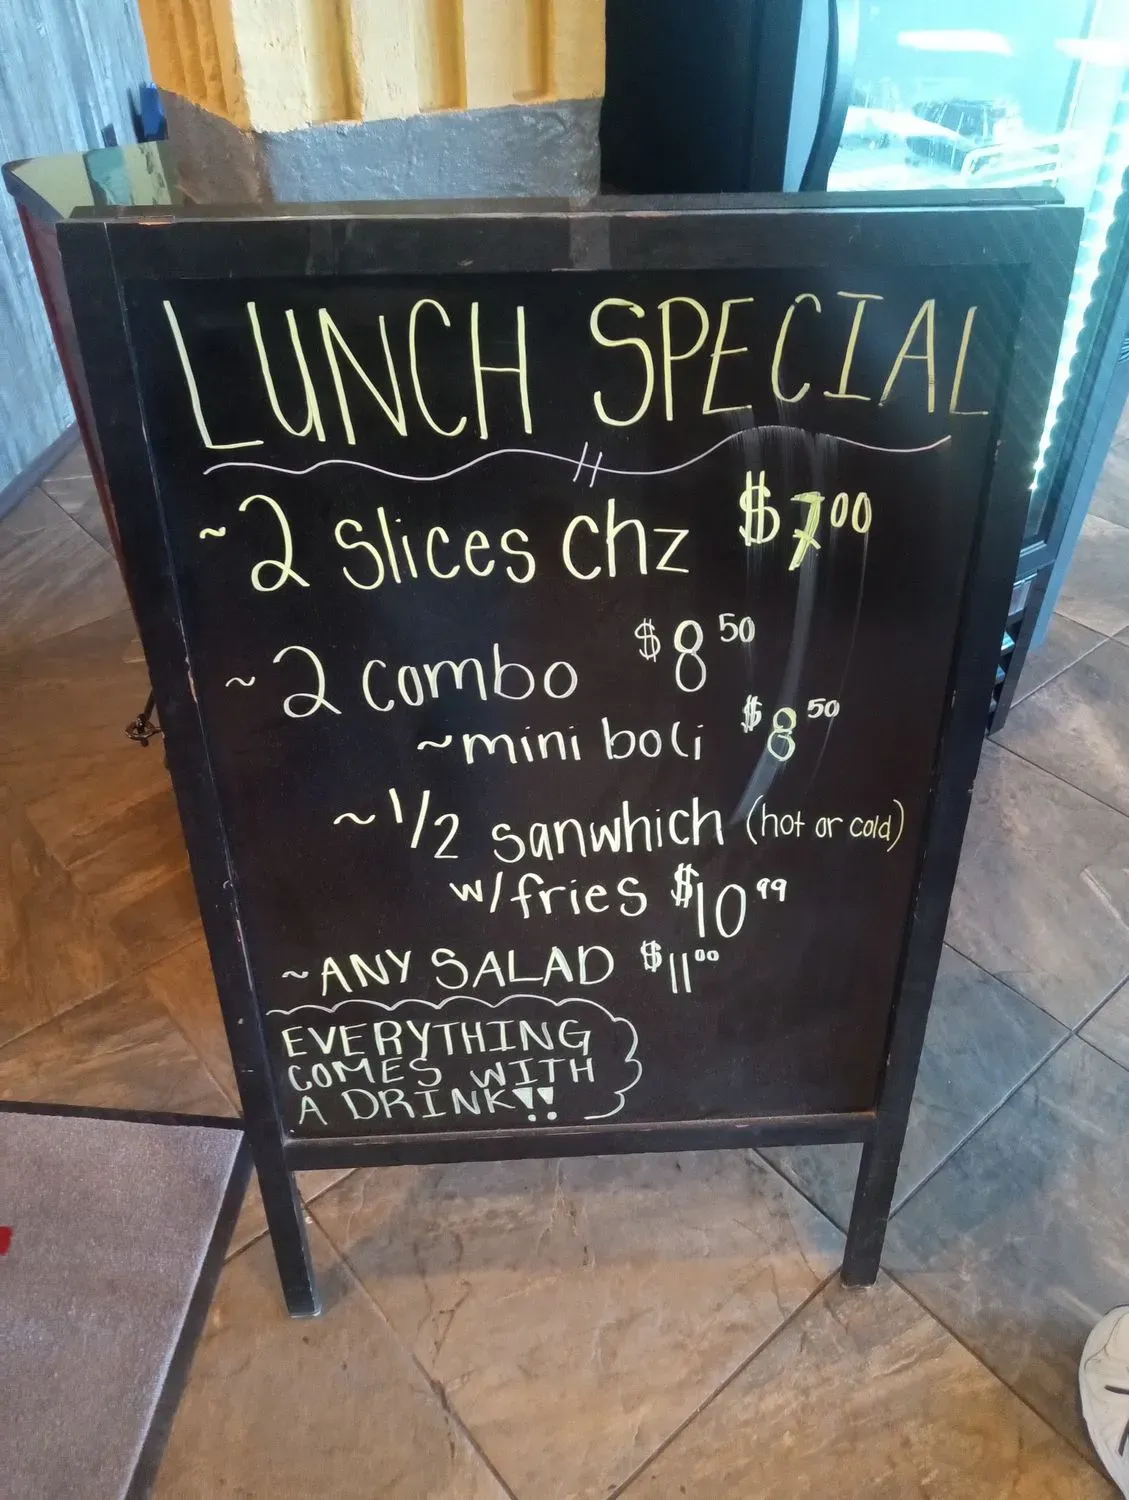 LUNCH SPECIAL
~2 slices chz $7.00
~2 combo $8.50
~mini boli $8.50
~1/2 sanwhich (hot or cold)
w/fries $10.99
~ANY SALAD $11.00
EVERYTHING
COMES WITH
A DRINK!!